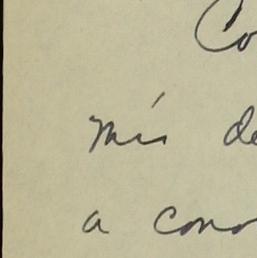 Co
mís de
a cono